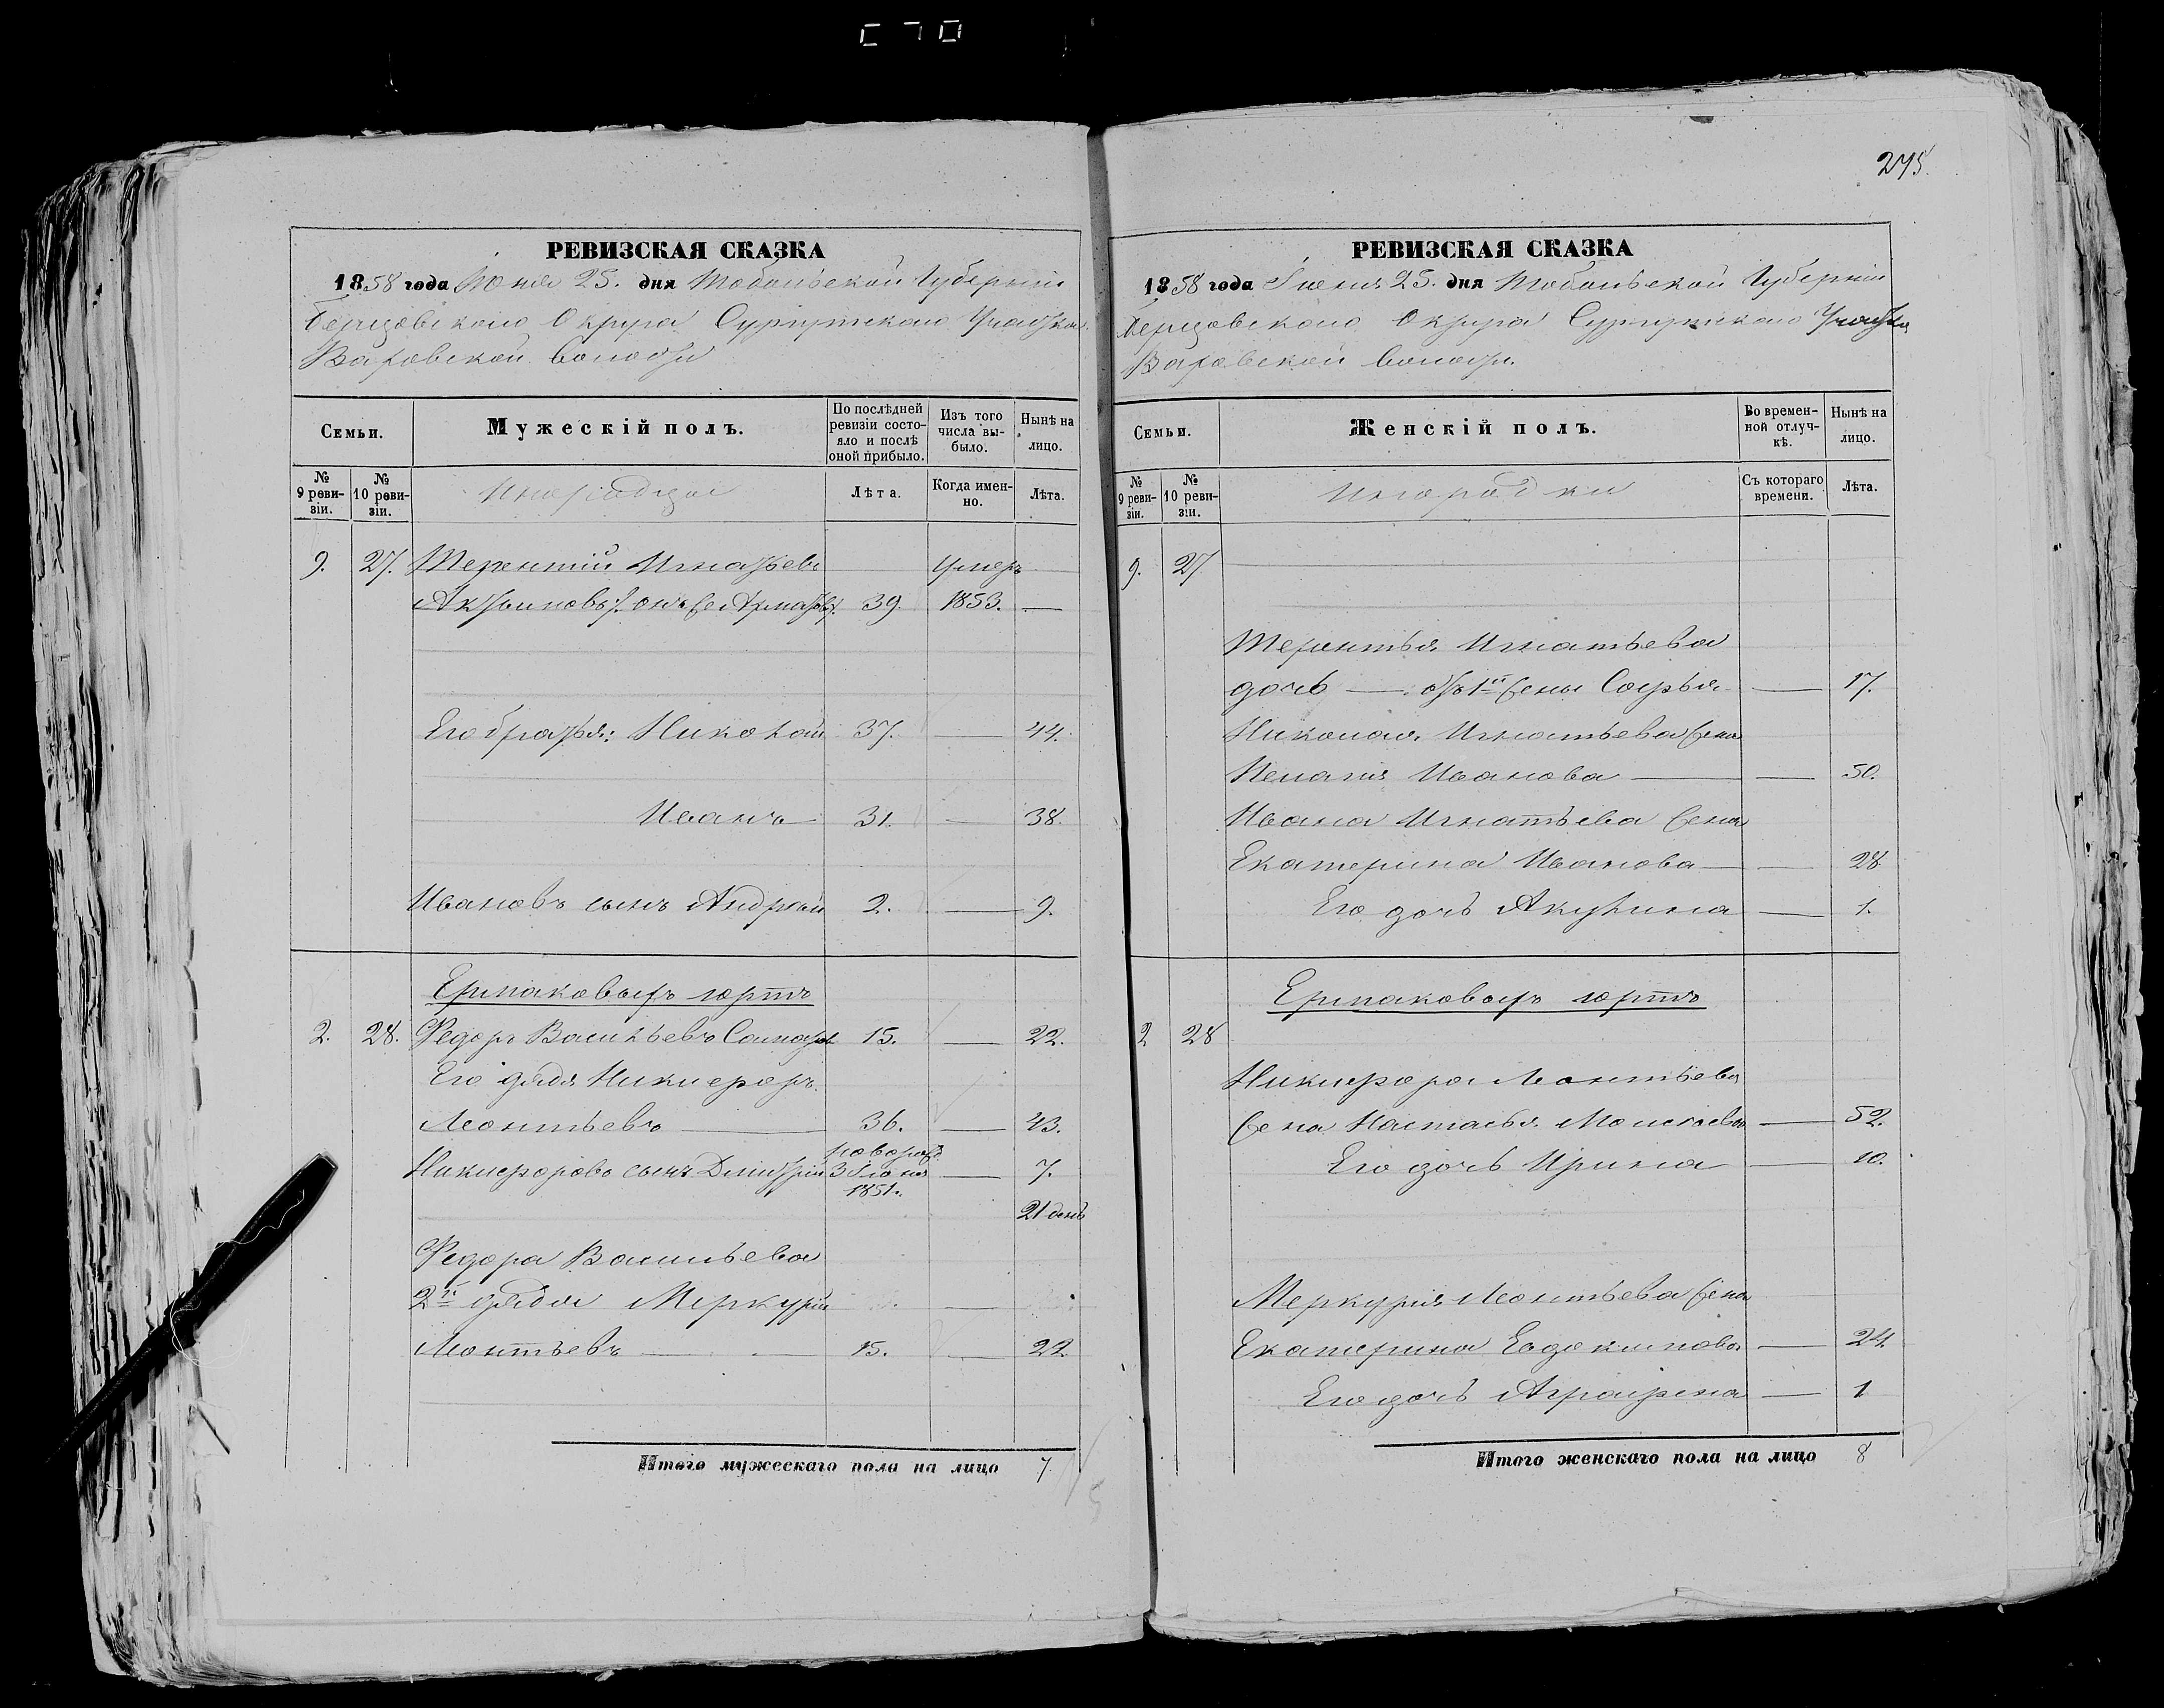 275.
РЕВИЗСКАЯ СКАЗКА
1858 года Июня 25. дня Тобольской Губерніи
Березовскаго Округа Сургутскаго Участка
Ваховской волости
Семьи.
Мужескій полъ.
По послѣдней ревизіи состояло и послѣ оной прибыло.
Изъ того числа выбыло.
Нынѣ на лицо.
№ 9 ревизіи.
№ 10 ревизіи.
Инородцы
Лѣта.
Когда именно.
Лѣта.
9. 27. Терентій Игнатьевъ умеръ
онъ же 39. 1853. —
Его братья: Николай 37. — 44.
Иванъ — 31. — 38.
Ивановъ сынъ Андрей 2. — 9.
Ермаковыхъ юртъ
2. 28. Федоръ Васильевъ 15. — 22.
Его дядя Никифоръ
Леонтьевъ — 36. — 43.
Никифоровъ сынъ Дмитрій новорож. 3 Іюня 1851. — 7.
21 день
Федора Васильева
2й дядя Меркурій —
Леонтьевъ — 15. — 22.
Итого мужескаго пола на лицо 7.
РЕВИЗСКАЯ СКАЗКА
1858 года Іюня 25. дня Тобольской Губерніи
Березовскаго Округа Сургутскаго Участка
Ваховской волости.
Семьи.
Женскій полъ.
Во временной отлучкѣ.
Нынѣ на лицо.
№ 9 ревизіи.
№ 10 ревизіи.
Инородки
Съ котораго времени.
Лѣта.
9. 27
Терентья Игнатьева
дочь — отъ 1й жены Софья — 17.
Николая Игнатьева жена
Пелагія Иванова — — 50.
Ивана Игнатьева жена
Екатерина Иванова — — 28
Его дочь Акулина — 1.
Ермаковыхъ юртъ
2 28
Никифора Леонтьева
жена Настасья Моисѣева — 52.
Его дочь Ирина — 10.
Меркурія Леонтьева жена
Екатерина Евдокимова — 24.
Его дочь Аграфена — 1
Итого женскаго пола на лицо 8